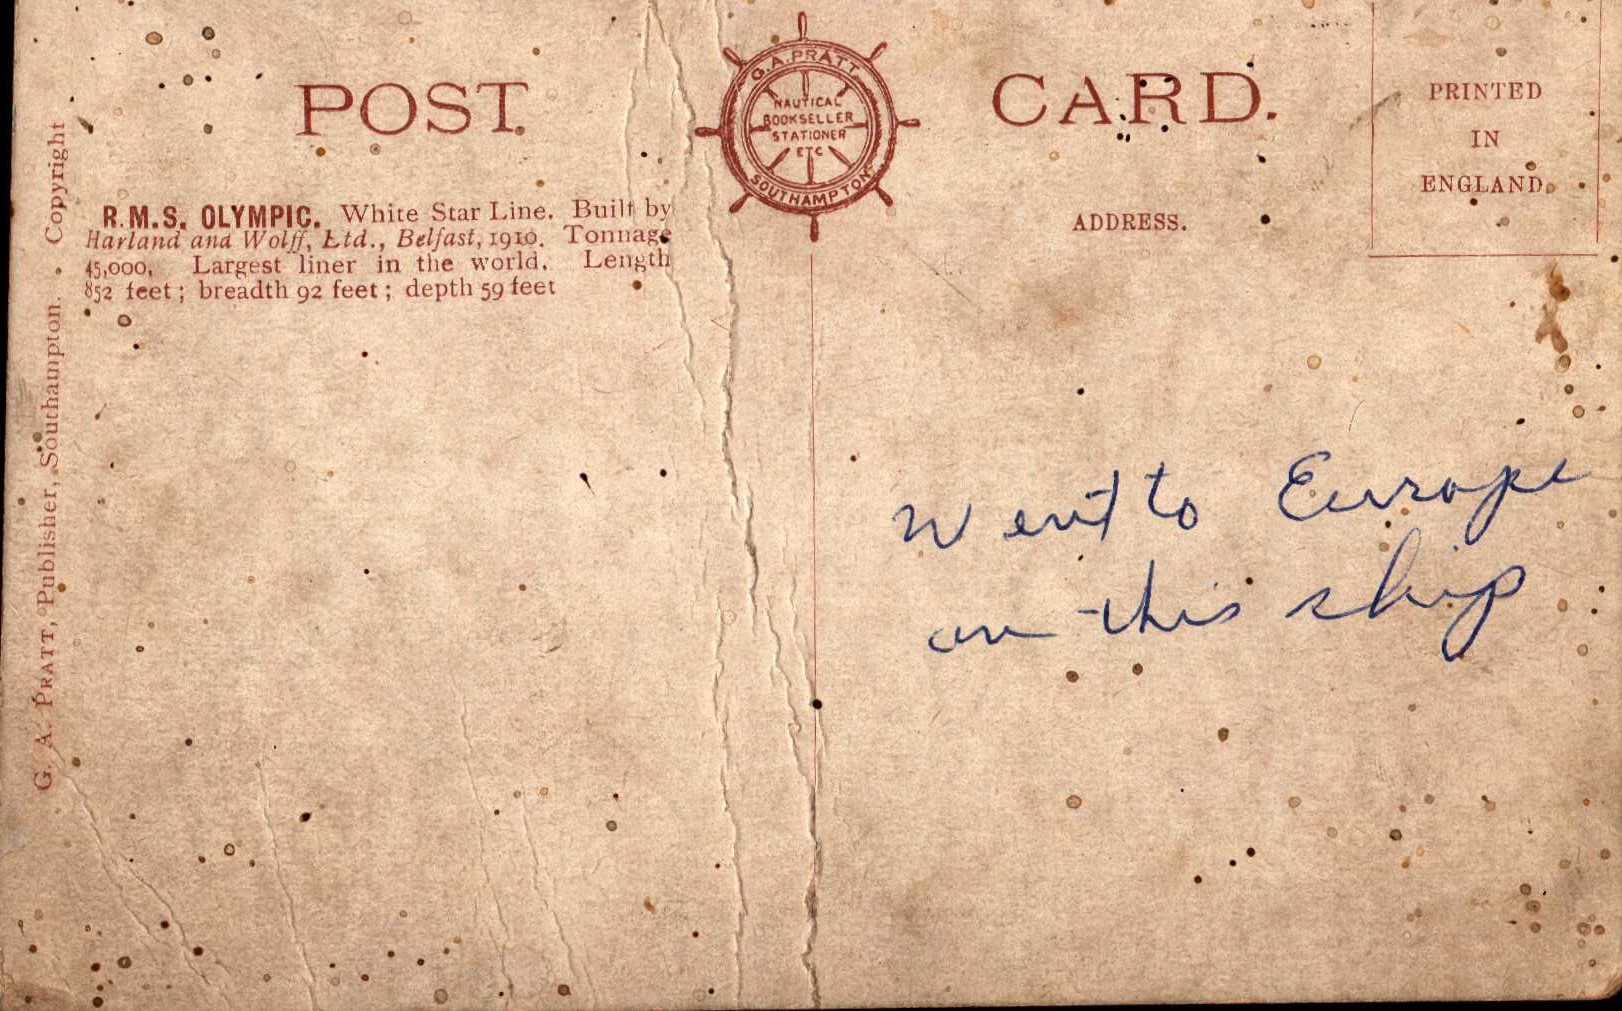 POST CARD.
G. A. PRATT
NAUTICAL
BOOKSELLER
STATIONER
ETC
SOUTHAMPTON
PRINTED
IN
ENGLAND.
ADDRESS.
R.M.S. OLYMPIC. White Star Line. Built by
Harland and Wolff, Ltd., Belfast, 1910. Tonnage
45,000. Largest liner in the world. Length
852 feet; breadth 92 feet; depth 59 feet
G. A. PRATT, Publisher, Southampton. . Copyright
Went to Europe
on this ship